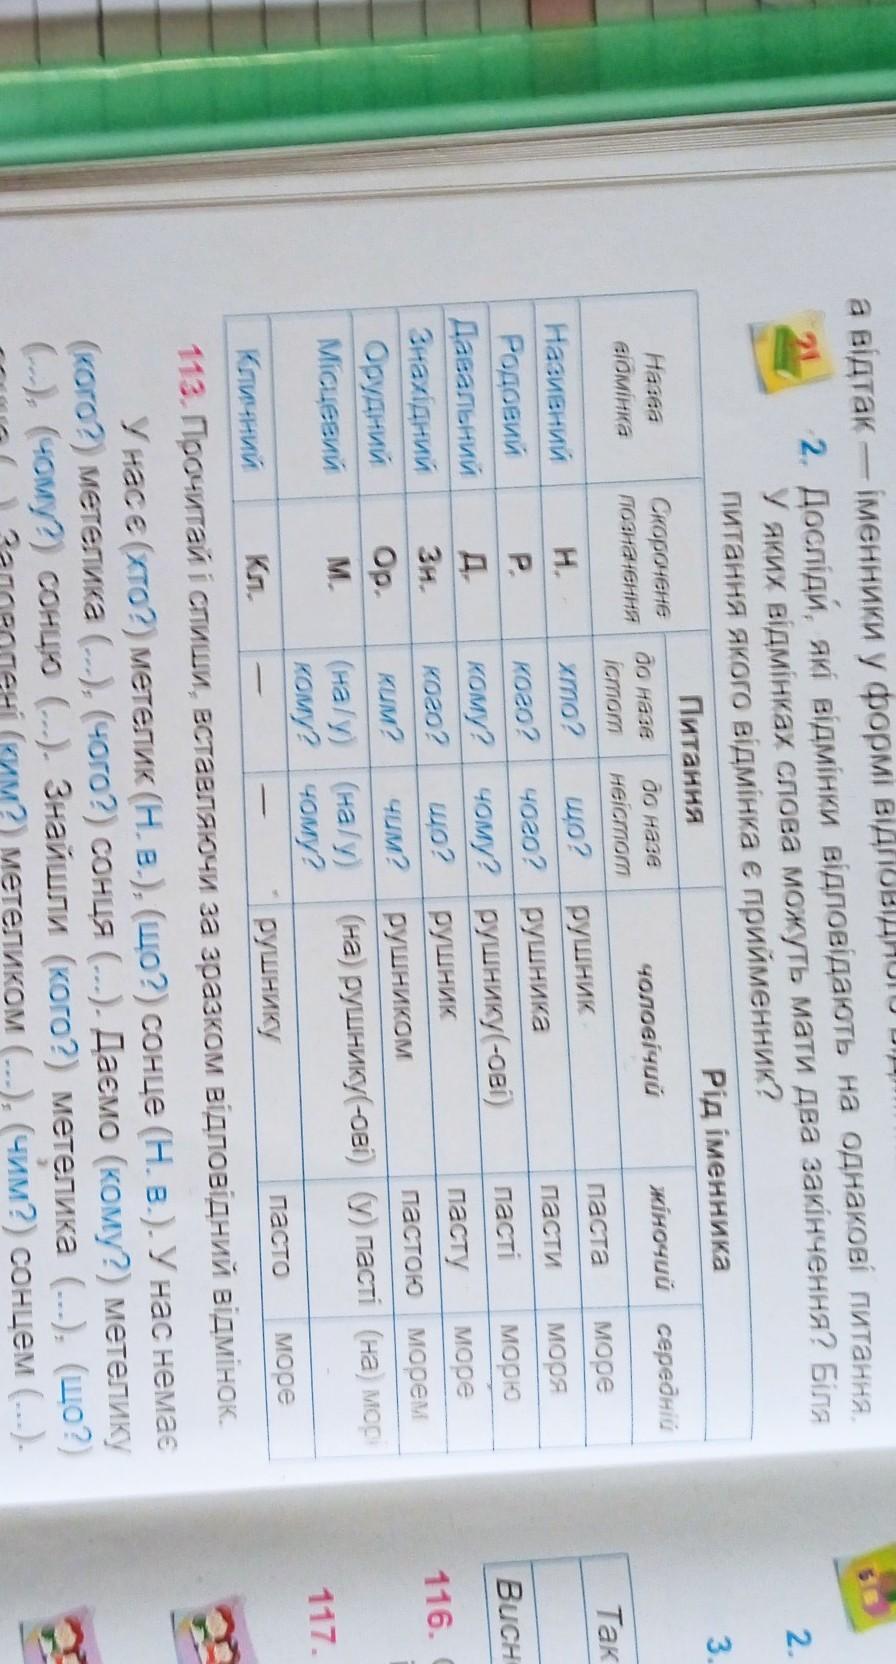 а відтак — іменники у формі
2. Досліди́, які відмінки відповідають на однакові питання.
У яких відмінках слова можуть мати два закінчення? Біля
питання якого відмінка є прийменник?
Назва відмінка Скорочене позначення Питання Рід іменника
до назв істот до назв неістот чоловічий жіночий середній
Називний Н. хто? що? рушник паста море
Родовий Р. кого? чого? рушника пасти моря
Давальний Д. кому? чому? рушнику(-ові) пасті морю
Знахідний Зн. кого? що? рушник пасту море
Орудний Ор. ким? чим? рушником пастою морем
Місцевий М. (на/у) кому? (на/у) чому? (на) рушнику(-ові) (у) пасті (на) морі
Кличний Кл. — — рушнику пасто море
113. Прочитай і спиши, вставляючи за зразком відповідний відмінок.
У нас є (хто?) метелик (Н. в.), (що?) сонце (Н. в.). У нас немає
(кого?) метелика (...), (чого?) сонця (...). Даємо (кому?) метелику
(...), (чому?) сонцю (...). Знайшли (кого?) метелика (...), (що?)
Задоволені (ким?) метеликом (...), (чим?) сонцем (...).
2.
3.
Так
116.
117.